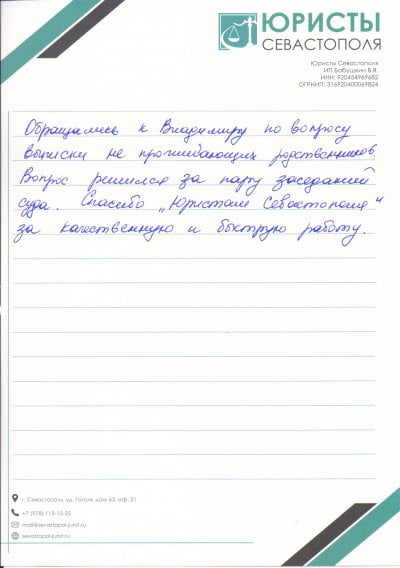 ЮРИСТЫ
СЕВАСТОПОЛЯ
Юристы Севастополя
ИП Бабушкин В.Я.
ИНН: 920454969682
ОГРНИП: 316920400069824
Обращались к Владимиру по вопросу
выписки не проживающих родственников.
Вопрос решился за пару заседаний
суда. Спасибо "Юристам Севастополя"
за качественную и быструю работу.
г. Севастополь, ул. Гоголя, дом 63, оф. 21
+7 (978) 115-15-25
mail@sevastopol-jurist.ru
sevastopol-jurist.ru